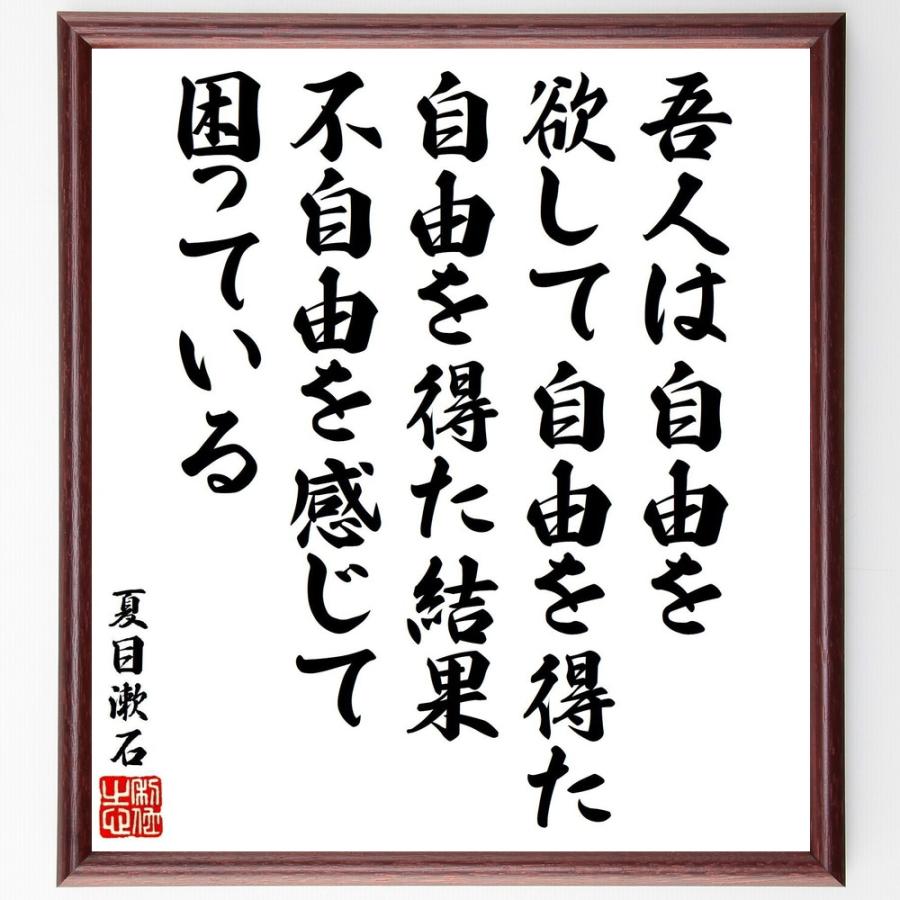 吾人は自由を
欲して自由を得た
自由を得た結果
不自由を感じて
困っている
夏目漱石